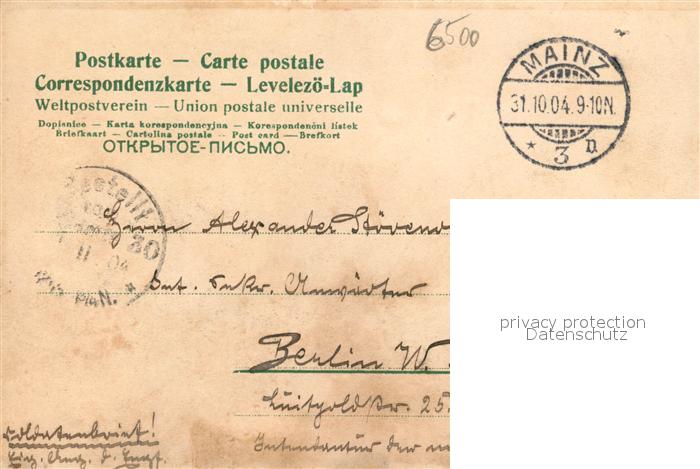 6500
Postkarte — Carte postale
Correspondenzkarte — Levelező-Lap
Weltpostverein — Union postale universelle
Dopisnice — Karta korespondencyjna — Korespondenční lístek
Briefkaart — Cartolina postale — Post card — Brefkort
ОТКРЫТОЕ-ПИСЬМО.
MAINZ
31.10.04.9-10N.
* 3 n
Bestellt
Herrn Alexander
Int. Sekr. Anwärter
Berlin W.
Luitpoldstr. 25.
Intendantur der
Soldatenbrief!
Eig. Ang. d. Empf.
privacy protection
Datenschutz